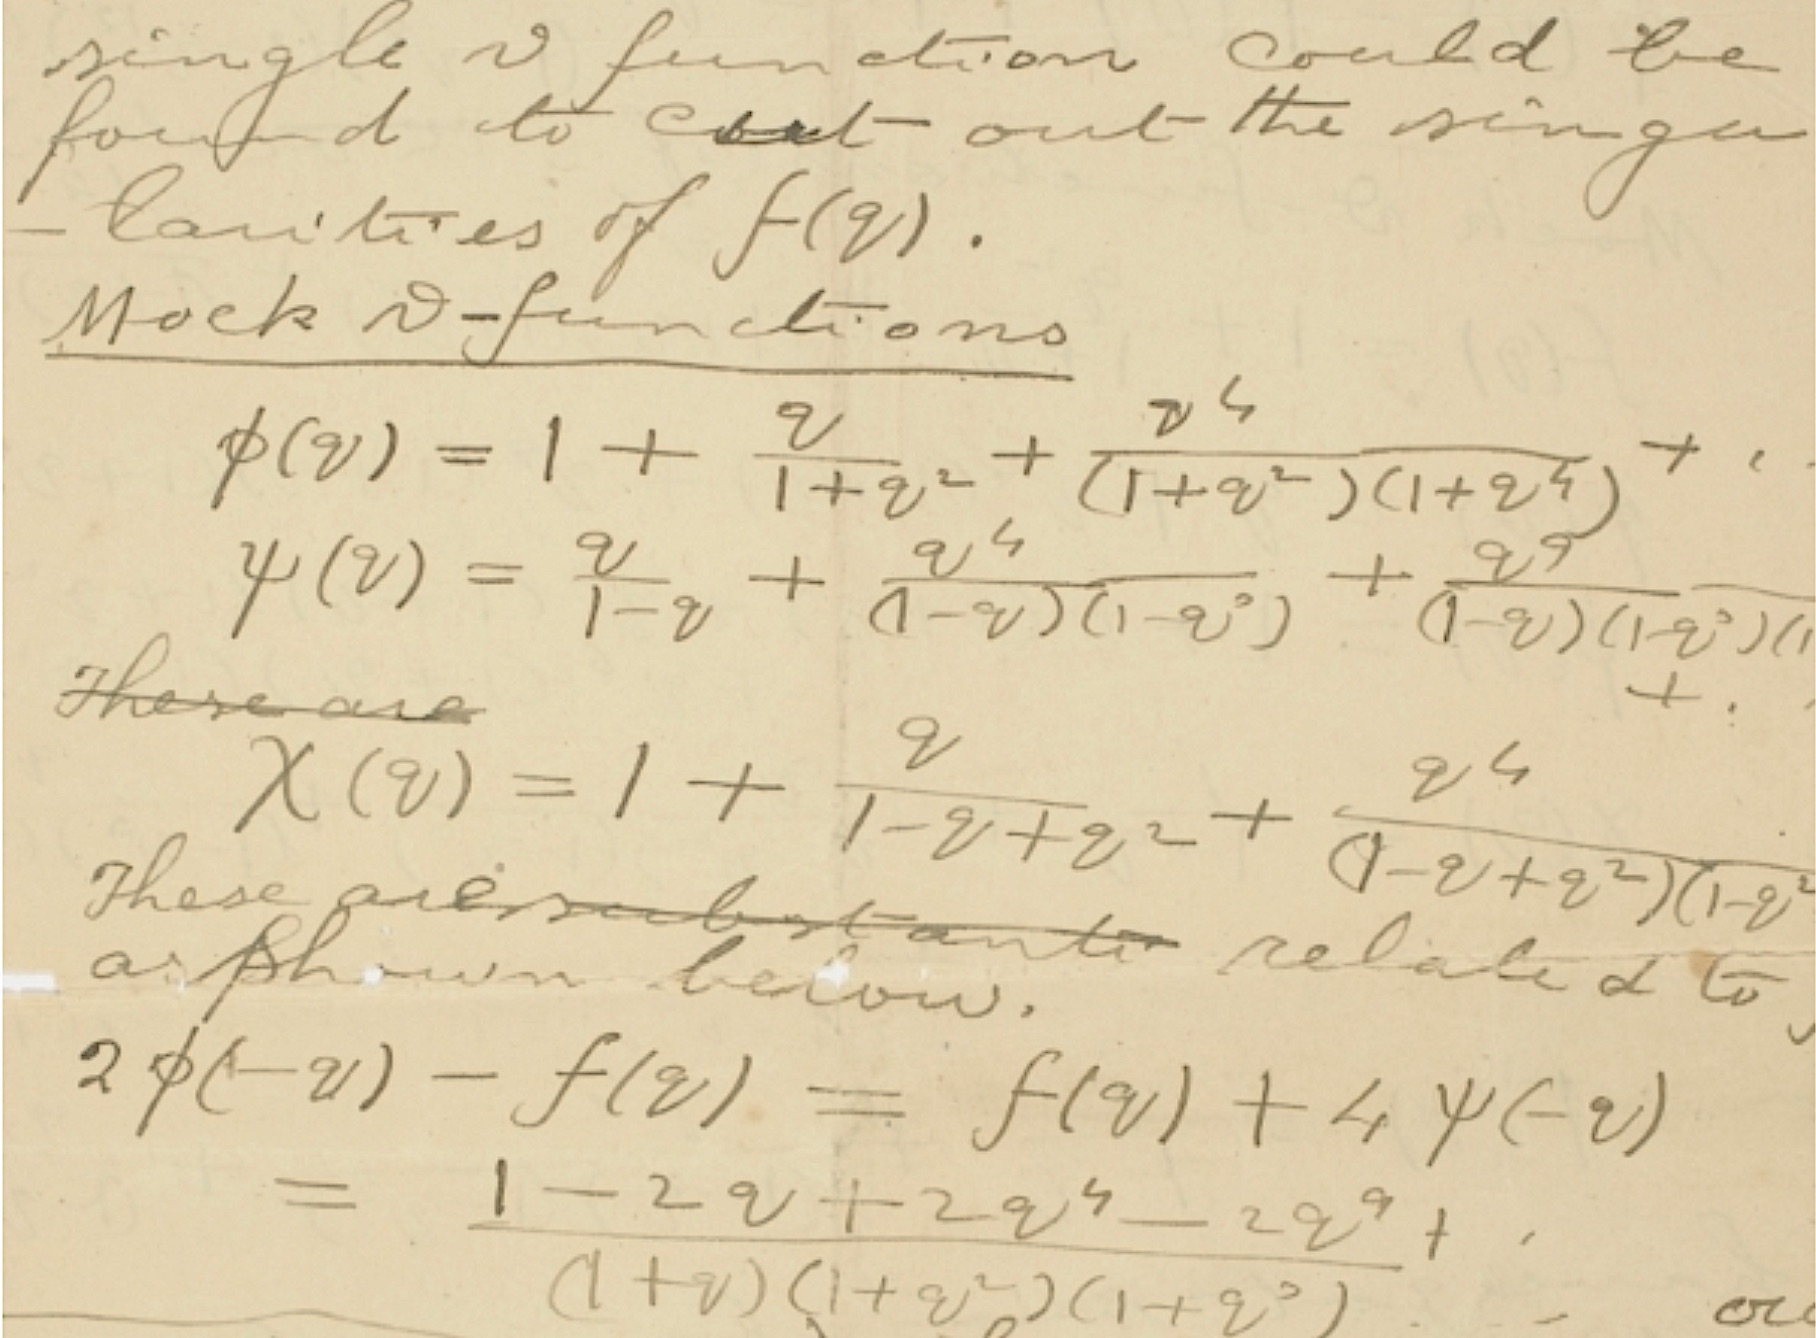 single ϑ function could be
found to cut out the singu
-larities of f(q).
Mock ϑ-functions
ϕ(q) = 1 + q/(1+q²) + q⁴/((1+q²)(1+q⁴)) + ..
ψ(q) = q/(1-q) + q⁴/((1-q)(1-q³)) + q⁹/((1-q)(1-q³)(1
+ . .
There are
χ(q) = 1 + q/(1-q+q²) + q⁴/((1-q+q²)(1-q²
These are substanti related to
as shown below.
2ϕ(-q) - f(q) = f(q) + 4ψ(-q)
= (1 - 2q + 2q⁴ - 2q⁹ + .)/((1+q)(1+q²)(1+q³) . .